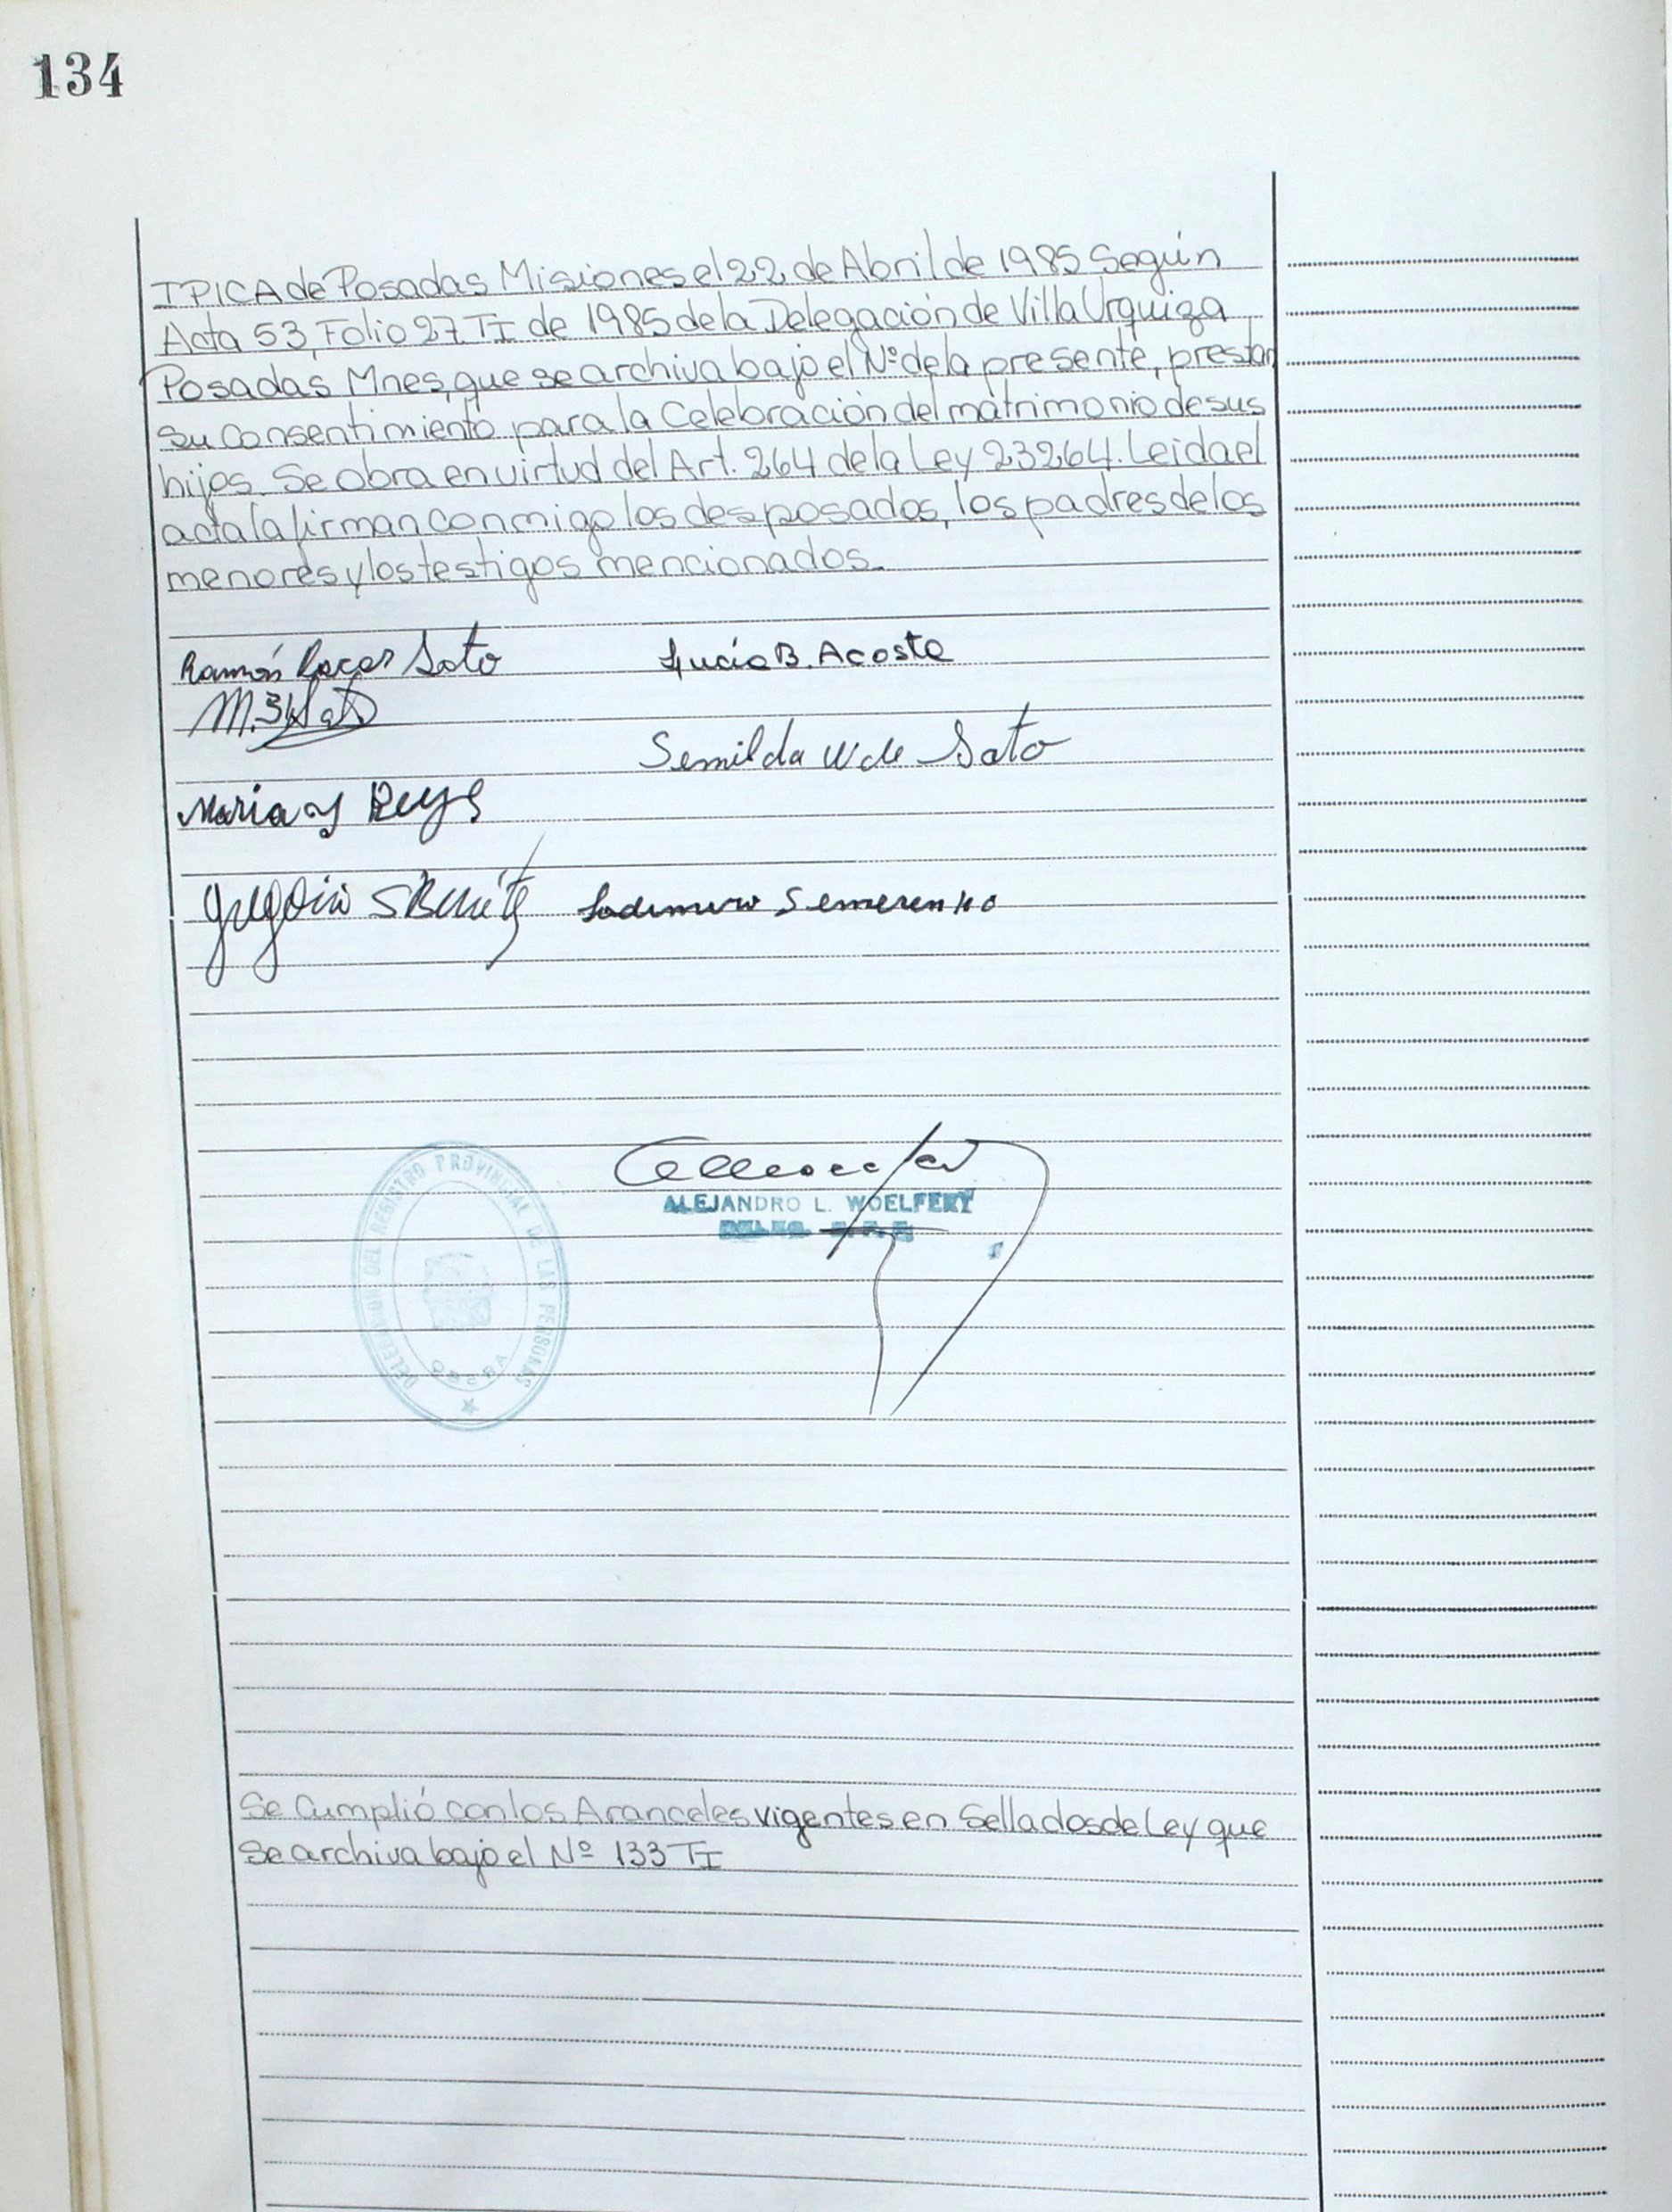 134
IPICA de Posadas Misiones el 22 de Abril de 1985 Según
Acta 53, Folio 27 TI de 1985 de la Delegación de Villa Urquiza
Posadas Mnes, que se archiva bajo el Nº de la presente, prestan
su consentimiento para la Celebración del matrimonio de sus
hijos. Se obra en virtud del Art. 264 de la Ley 23264. Leida el
acta la firman conmigo los desposados, los padres de los
menores y los testigos mencionados.
Ramón Soto Lucia B. Acosta
Semilda W de Soto
Maria
Gregorio S Benite Semerenko
ALEJANDRO L. WOELFERT
DELEGACION DEL REGISTRO PROVINCIAL DE LAS PERSONAS
OBERA
Se Cumplió con los Aranceles vigentes en Sellados de Ley que
se archiva bajo el Nº 133 TI